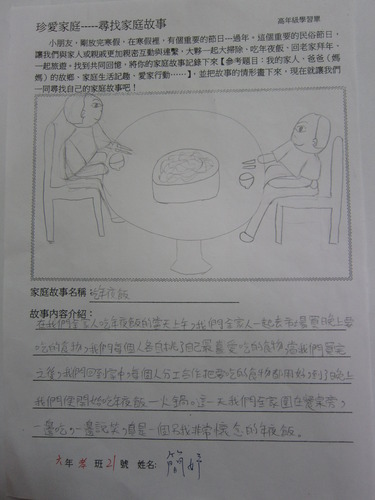 珍愛家庭-----尋找家庭故事
高年級學習單
小朋友，剛放完寒假，在寒假裡，有個重要的節日---過年，這個重要的民俗節日，
讓我們與家人或親戚更加親密互動與連繫，大夥一起大掃除、吃年夜飯、回老家拜年、
一起旅遊，找到共同回憶，將你的家庭故事記錄下來【參考題目：我的家人、爸爸（媽
媽）的故鄉、家庭生活記趣、愛家行動……】，並把故事的情形畫下來，現在就讓我們
一同尋找自己的家庭故事吧！
家庭故事名稱：吃年夜飯
故事內容介紹：
在我們全家人吃年夜飯的當天上午，我們全家人一起去市場買晚上要
吃的食物，我們每個人各自挑了自己最喜愛吃的食物，當我們買完
之後，我們回到家中，每個人分工合作把要吃的食物都用好，到了晚上
我們便開始吃年夜飯－火鍋，這一天我們全家圍在餐桌旁，
一邊吃，一邊說笑，真是一個令我非常懷念的年夜飯。
六年 班21號 姓名：簡妤